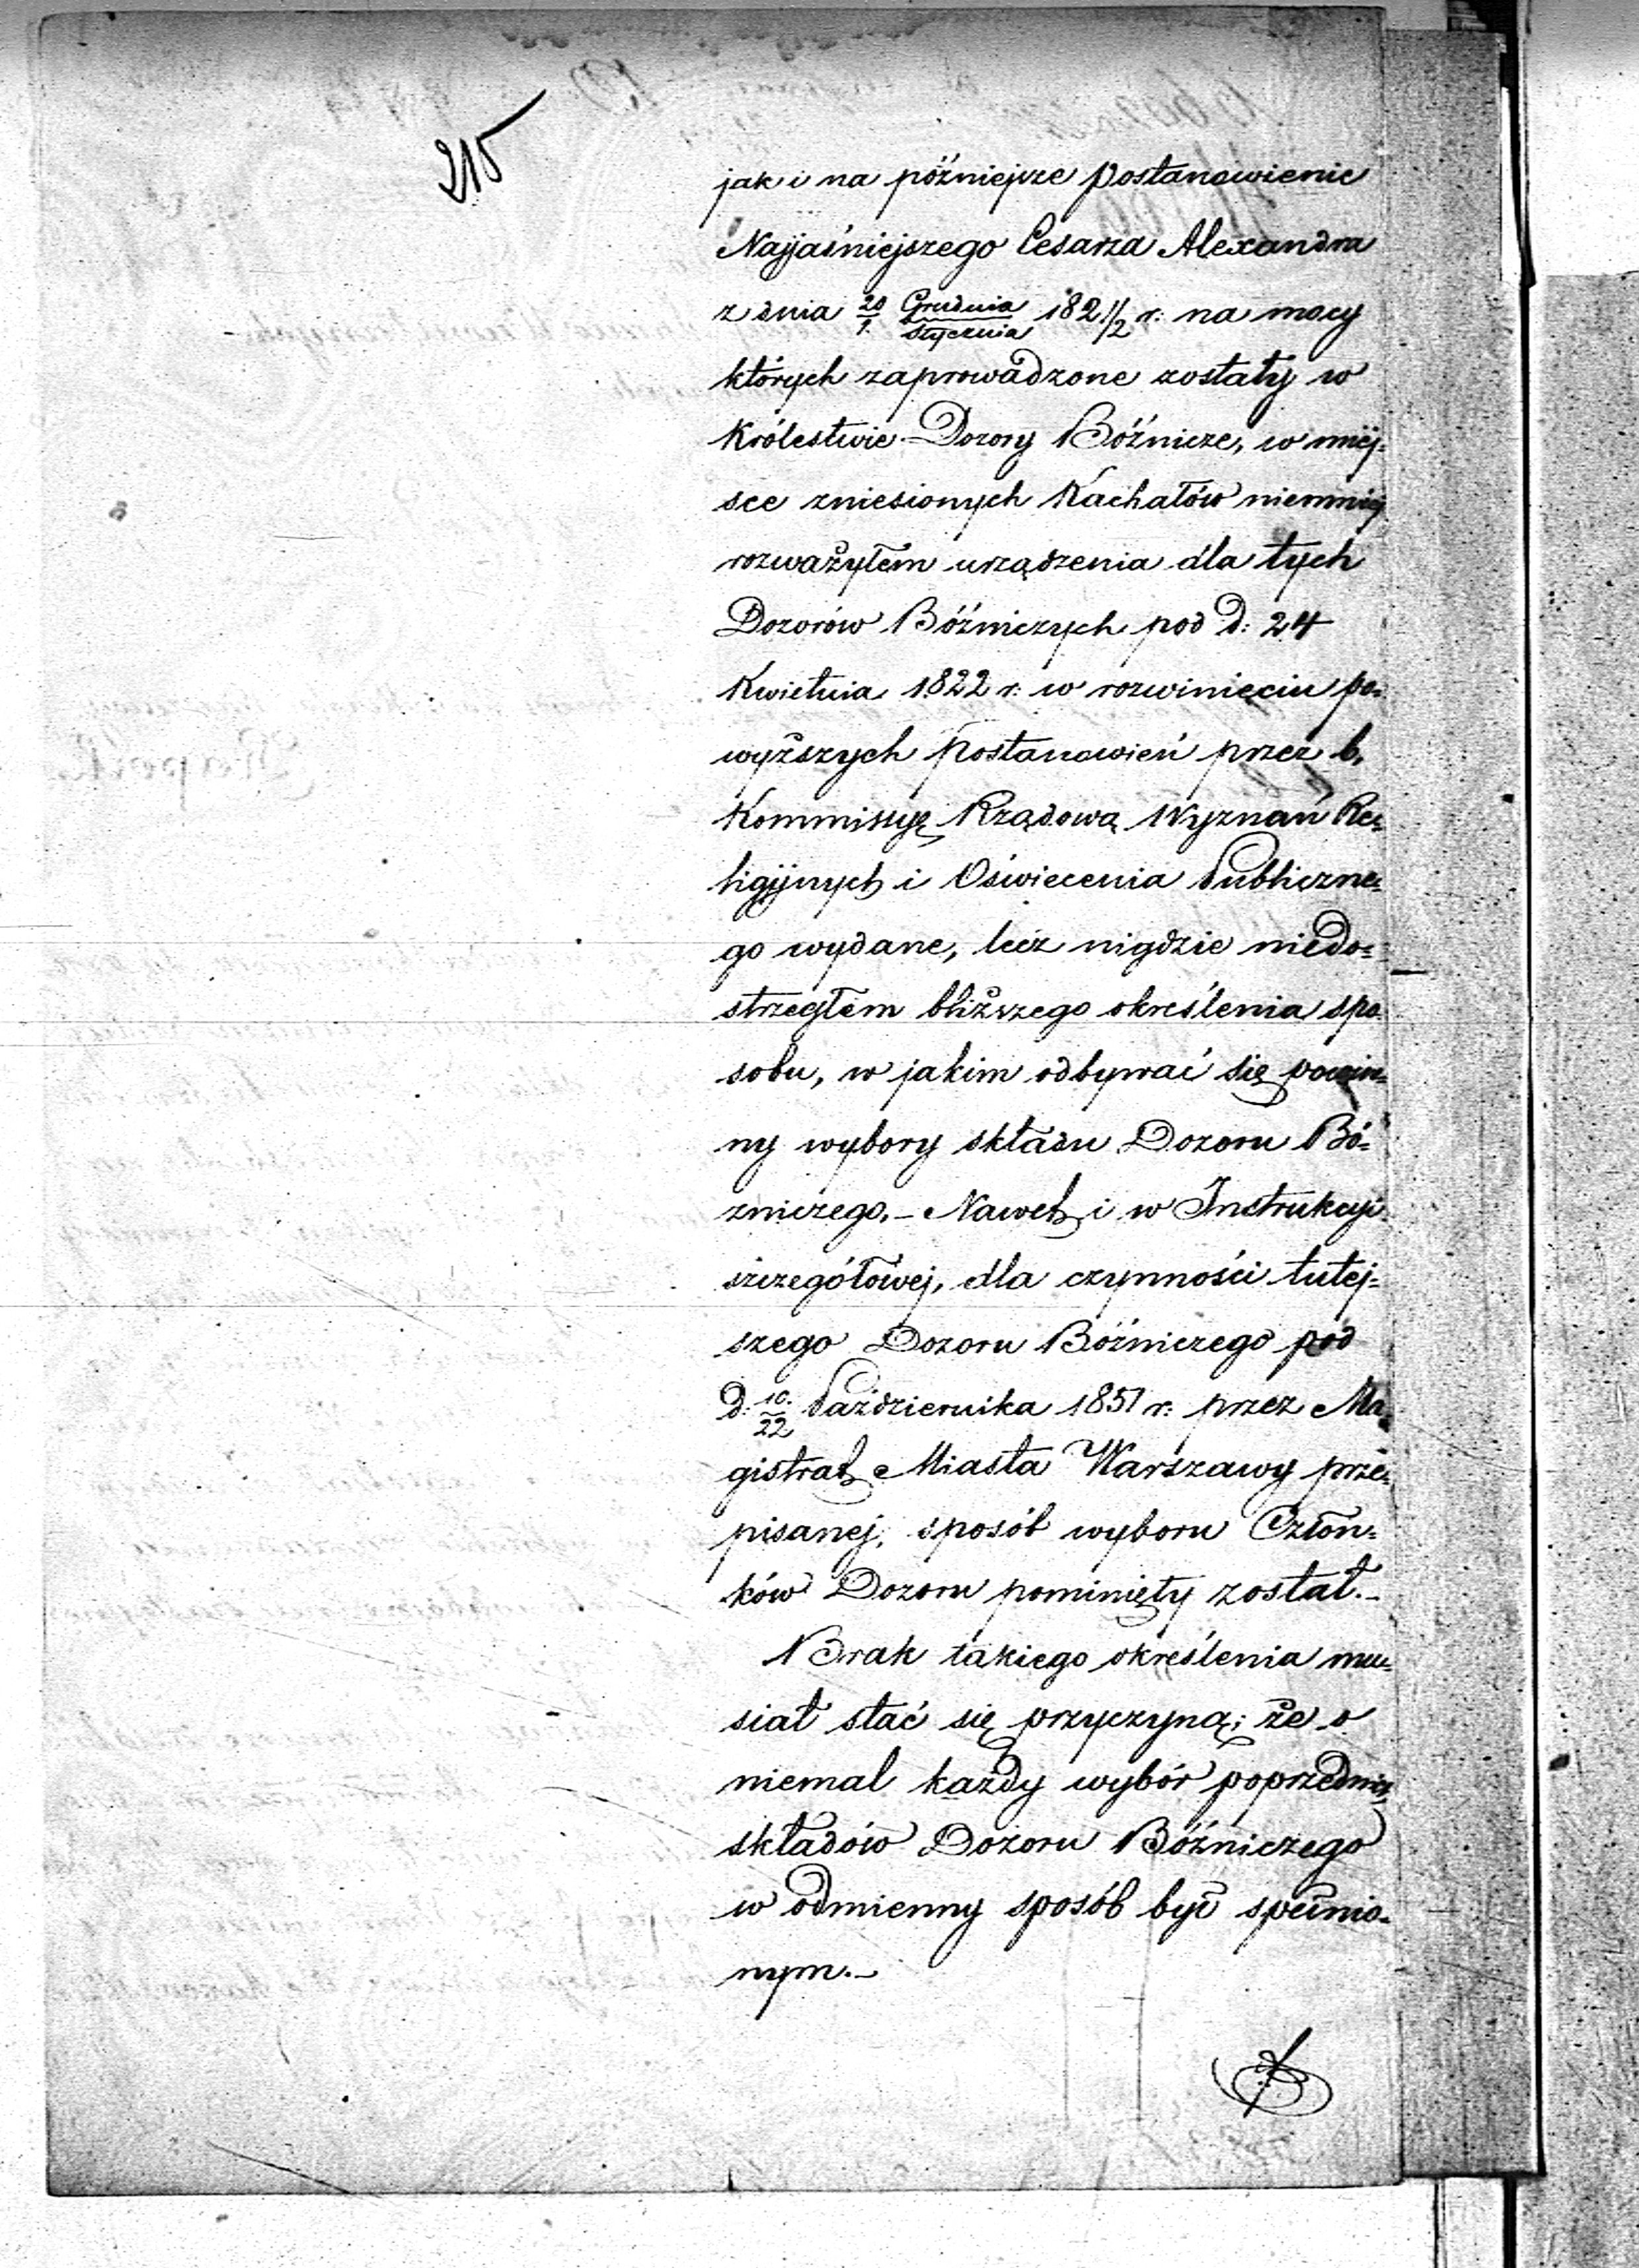 215
jak i na późniejsze postanowienie
Najjaśniejszego Cesarza Alexandra
z dnia 20/1. Grudnia/Stycznia 1821/2 r: na mocy
których zaprowadzone zostały w
Królestwie Dozory Bóźnicze, w miej-
sce zniesionych Kachałów niemniej
rozważyłem urządzenia dla tych
Dozorów Bóźniczych pod d: 24
Kwietnia 1822 r: w rozwinięciu po-
wyższych postanowień przez b.
Kommissyę Rządową Wyznań Re-
ligijnych i Oświecenia Publiczne-
go wydane, lecz nigdzie niedo-
strzegłem bliższego określenia spo-
sobu, w jakim odbywać się powin-
ny wybory składu Dozoru Bó-
zniczego.- Nawet i w Instrukcyi
szczegółowej, dla czynności tutej-
szego Dozoru Bóźniczego pod
d: 10./22 Października 1851 r: przez Ma-
gistrat Miasta Warszawy prze-
pisanej, sposób wyboru Człon-
ków Dozoru pominięty został.-
Brak takiego określenia mu-
siał stać się przyczyną; że o
niemal każdy wybór poprzednich
składów Dozoru Bóźniczego
w odmienny sposób był spełnio-
nym.-